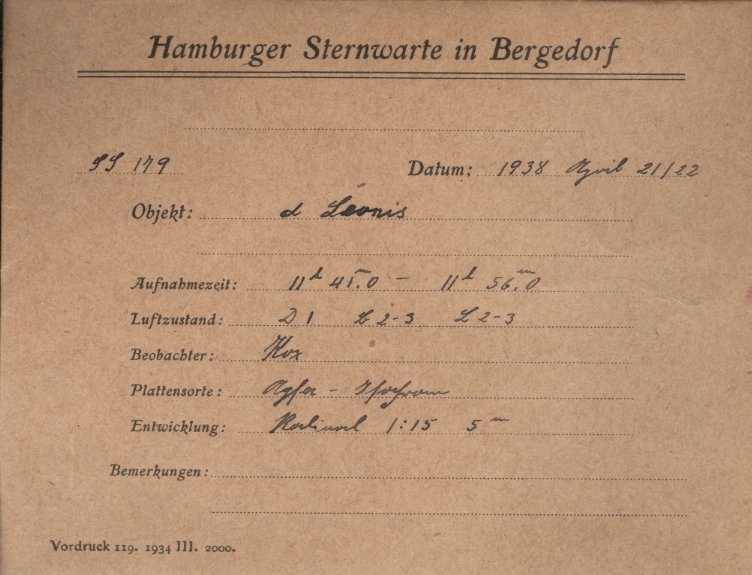 Hamburger Sternwarte in Bergedorf
SS 179 Datum: 1938 April 21/22
Objekt: d Leonis
Aufnahmezeit: 11h 41m.0 – 11h 56m.0
Luftzustand: D 1 2-3 L 2-3
Beobachter: Kox
Plattensorte: Agfa - Isochrom
Entwicklung: Rodinal 1:15 5m
Bemerkungen:
Vordruck 119. 1934 III. 2000.